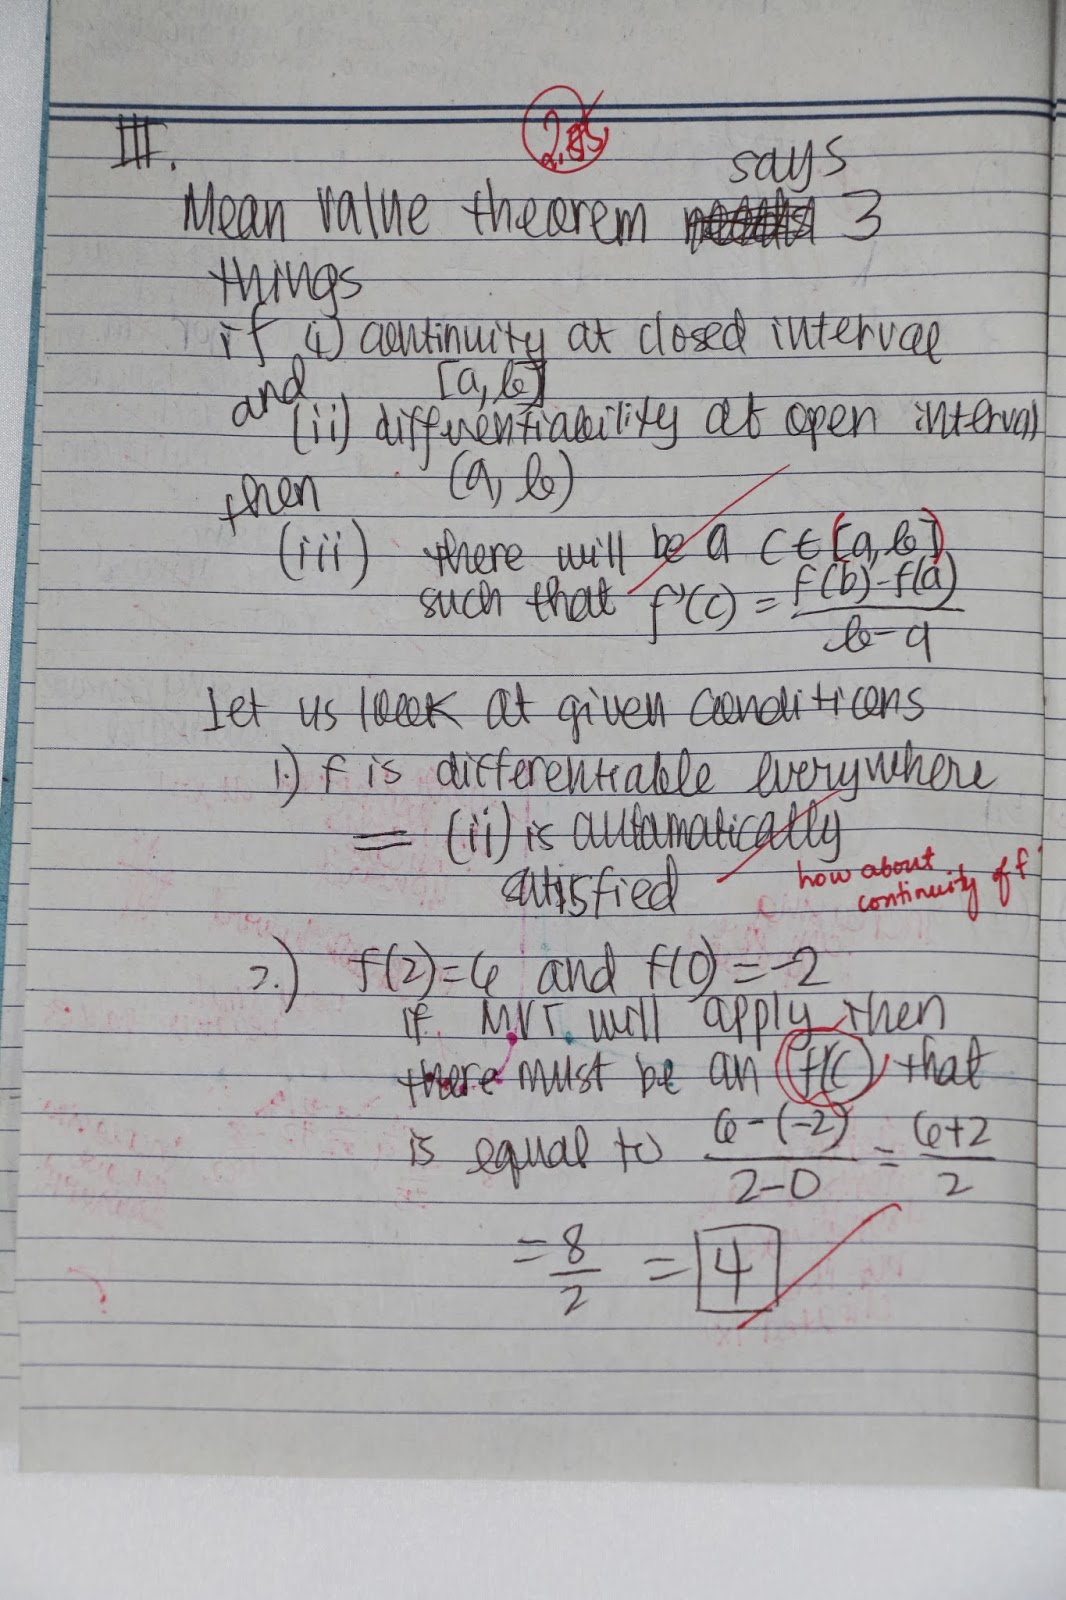 III.
says
Mean value theorem 3
things
if i) continuity at closed interval
and [a, b]
(ii) differentiability at open interval
then (a, b)
(iii) there will be a c ∈ [a, b]
such that f'(c) = f(b)-f(a) / b-a
Let us look at given conditions
1.) f is differentiable everywhere
= (ii) is automatically
satisfied
how about
continuity of f
2.) f(2)=6 and f(0)=-2
if MVT will apply then
there must be an f'(c) that
is equal to 6-(-2) / 2-0 = 6+2 / 2
= 8 / 2 = 4